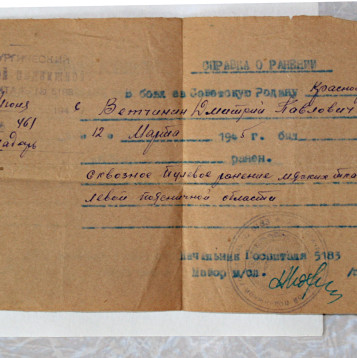 СПРАВКА О РАНЕНИИ
В боях за Советскую Родину Красно
Ветчинин Дмитрий Павлович
№ 461
12 " Марта 1945 г. был
ранен.
Сквозное пулевое ранение мягких тка
левой поясничной области
Начальник Госпиталя 5183
Майор м/сл.